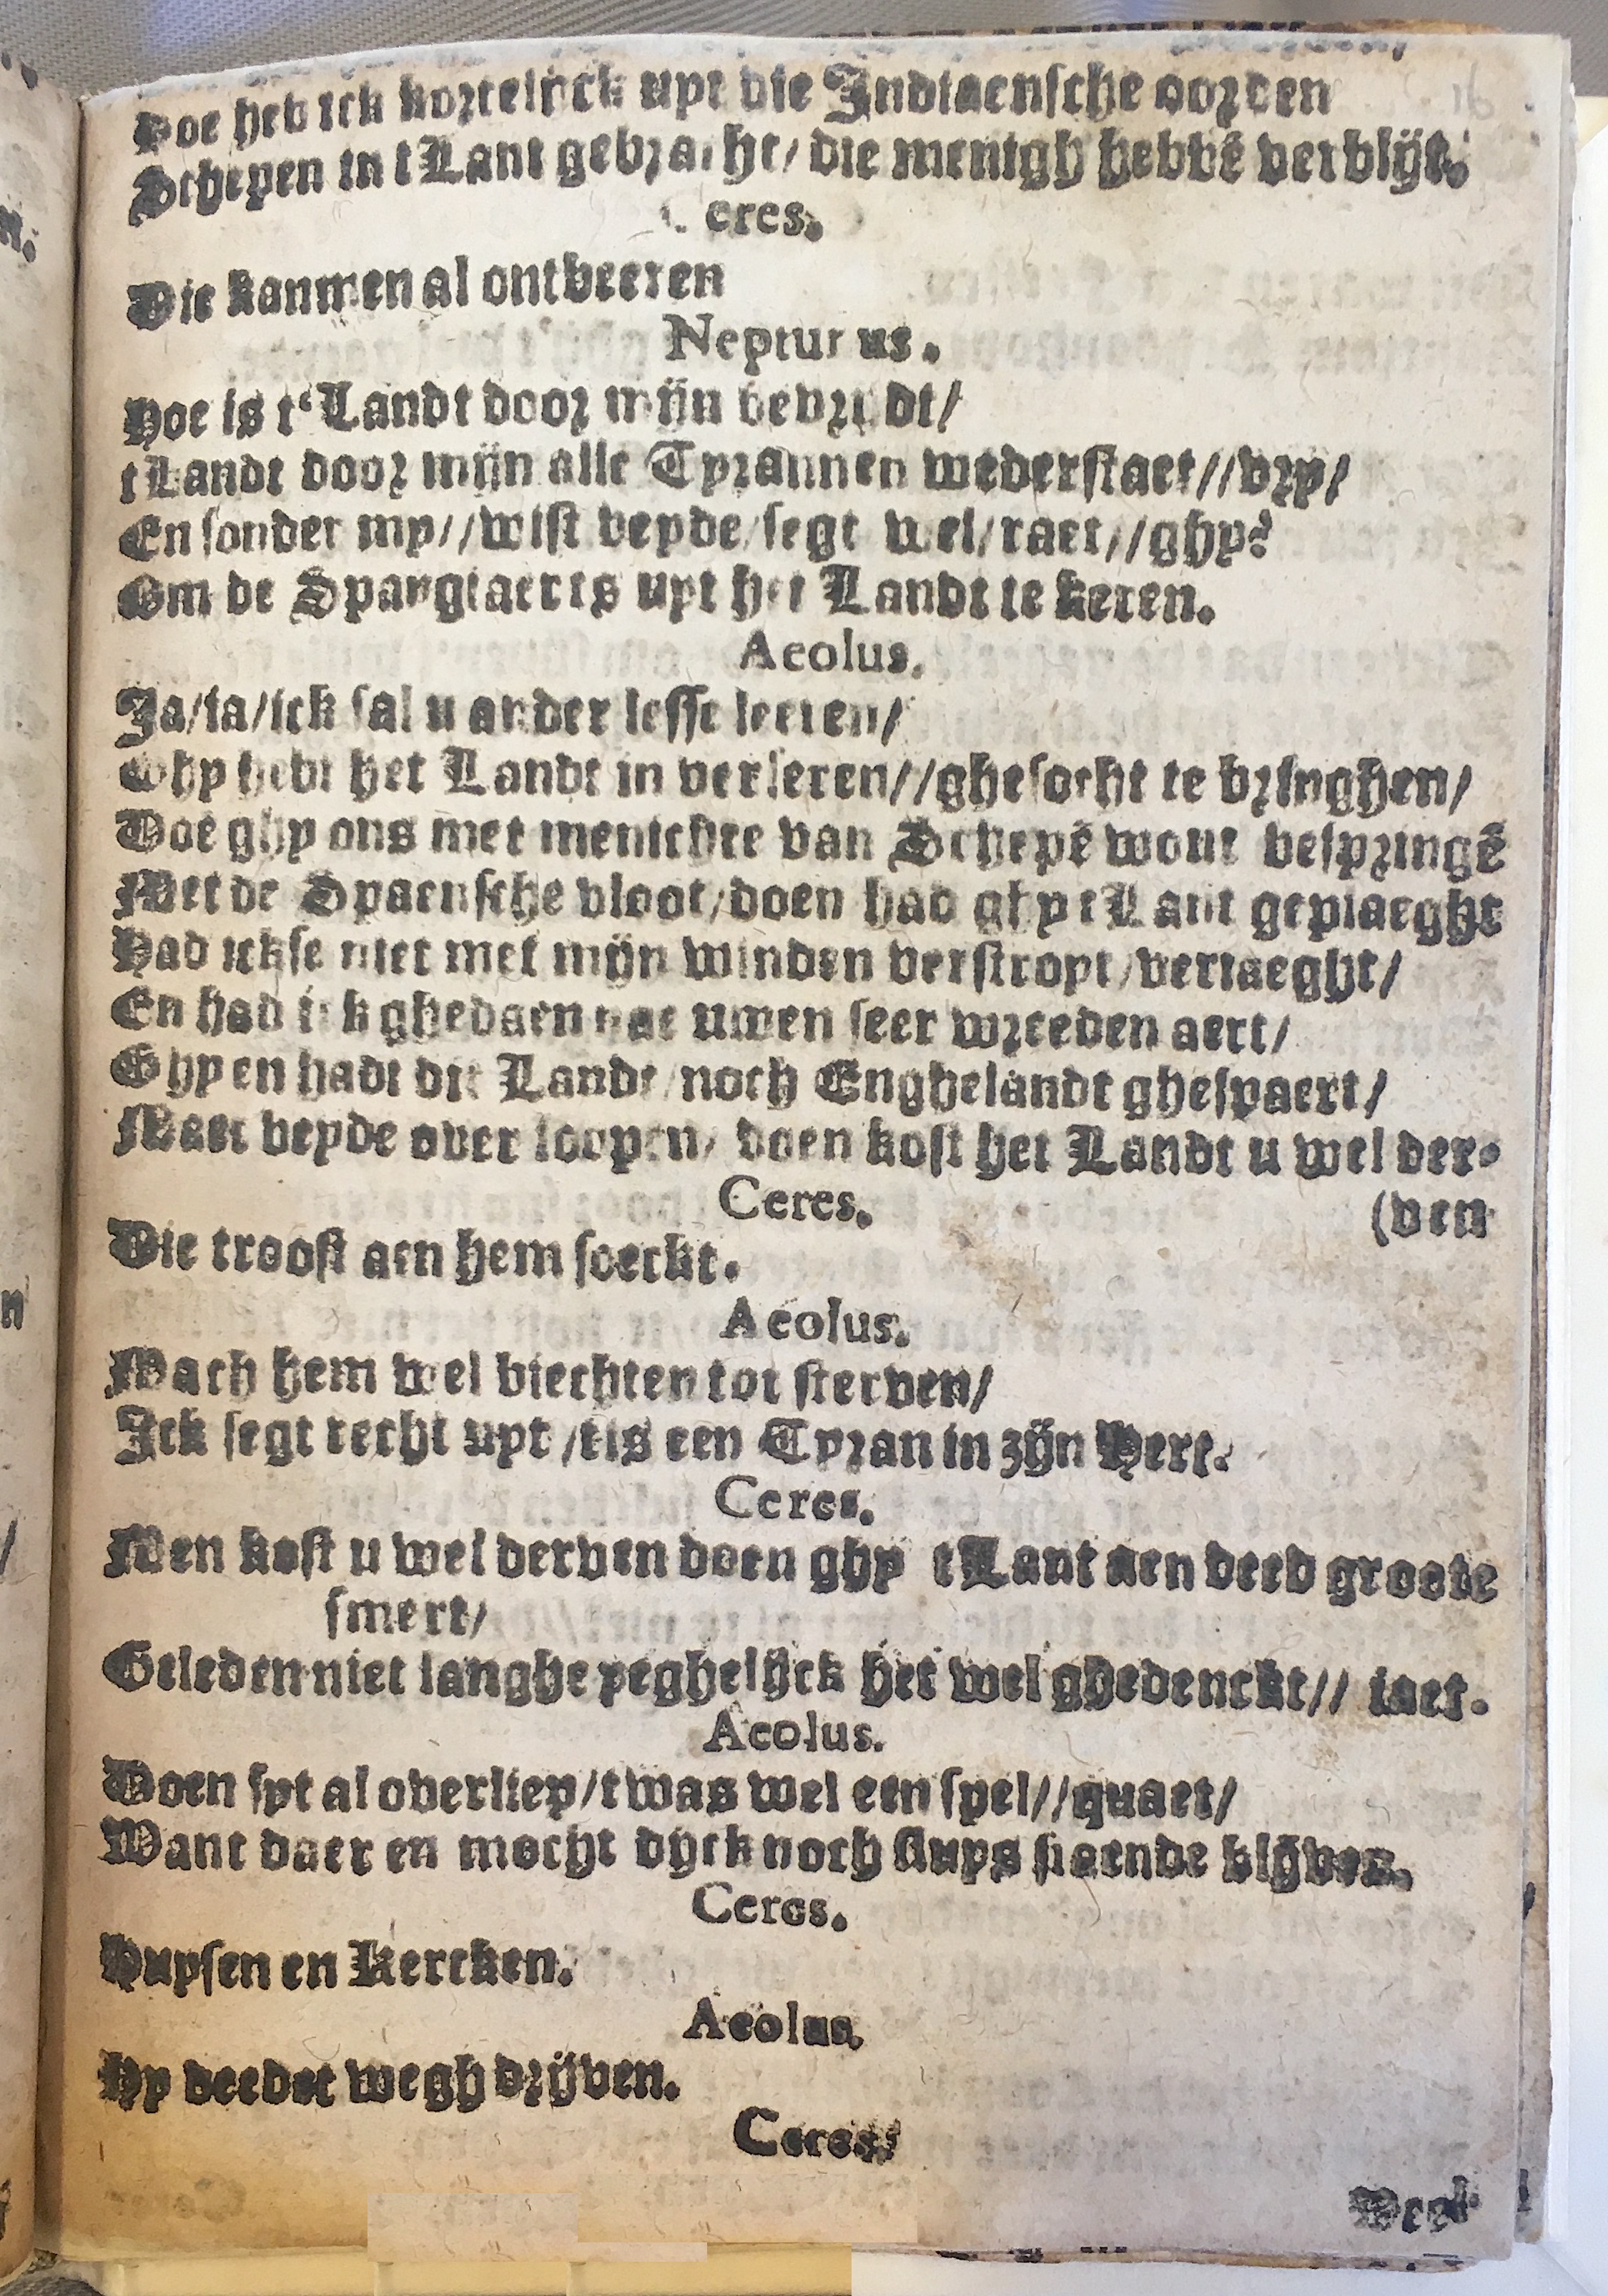 Hoe heb ick kortelijck uyt die Indiaensche oorden
Schepen in t Lant gebracht/ die menigh hebbē verblijt.
Ceres.
Die kanmen al ontbeeren
Neptunus.
Hoe is t‘Landt door mijn bevrydt/
t Landt door mijn alle Tyrannen wederstaet//vry/
En sonder my//wist beyde/segt wel/raet//ghy?
Om de Spangiaerts uyt het Landt te keren.
Aeolus.
Ja/ia/ick sal u ander lesse leeren/
Ghy hebt het Landt in verseren//ghesocht te bringhen/
Doē ghy ons met menichte van Schepē wout bespringē
Met de Spaensche vloot/doen had ghy t Lant geplaeght
Had ickse niet met mijn winden verstroyt/veriaeght/
En had ick ghedaen nae uwen seer wreeden aert/
Ghy en hadt dit Landt/noch Enghelandt ghespaert/
Maer beyde over loopen/ doen kost het Landt u wel der-
Ceres. (ven
Die troost aen hem soeckt.
Aeolus.
Mach hem wel biechten tot sterven/
Ick segt recht uyt/tis een Tyran in zijn Hert.
Ceres.
Men kost u wel derven doen ghy t Lant aen deed groote
smert/
Geleden niet langhe yeghelijck het wel ghedenckt// iaet.
Aeolus.
Doen syt al overliep/twas wel een spel//quaet/
Want daer en mocht dyck noch sluys staende blijven.
Ceres.
Huysen en Kercken.
Aeolus.
Hy deedet wegh drijven.
Ceres.